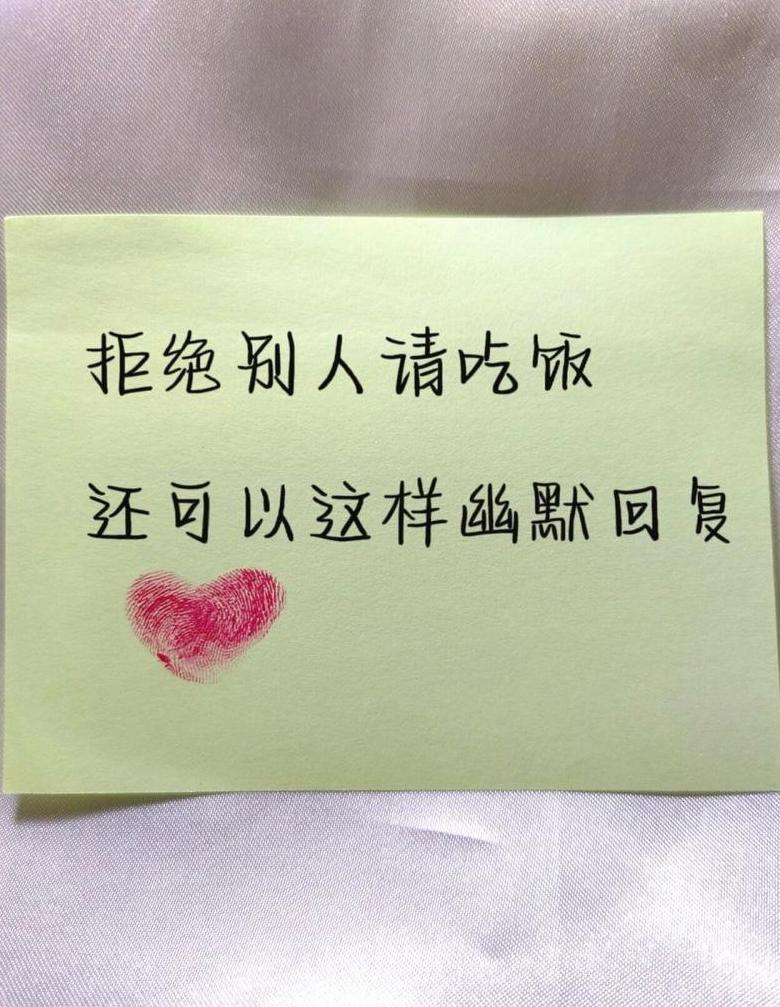 拒绝别人请吃饭
还可以这样幽默回复